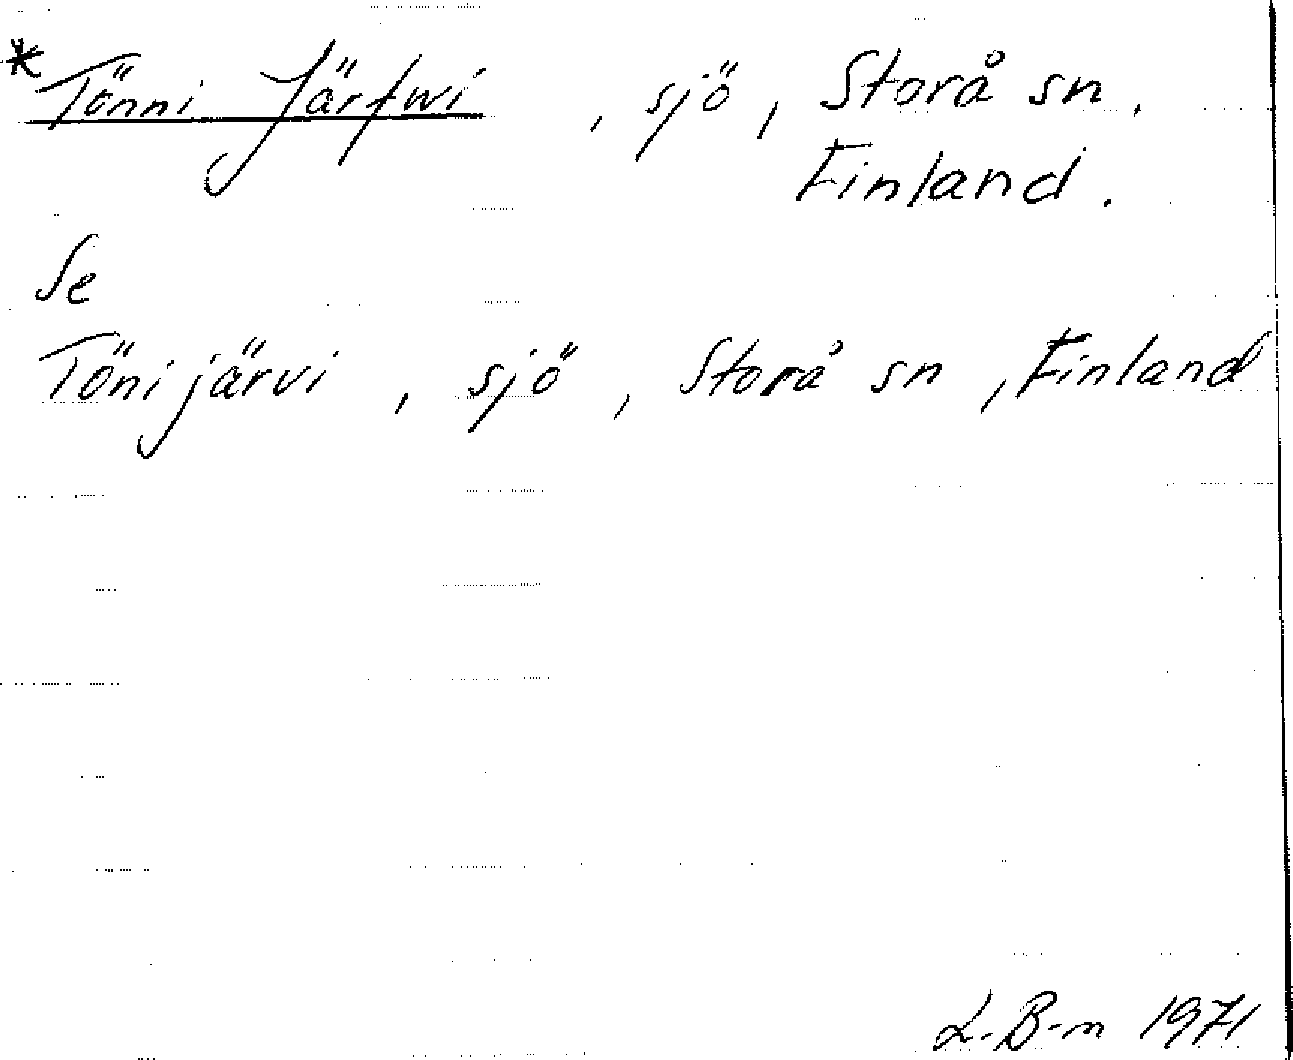 *Tönni Järfwi, sjö, Storå sn.
Finland.
Se
Tönijärvi, sjö, Storå sn, Finland
L.B-n 1971